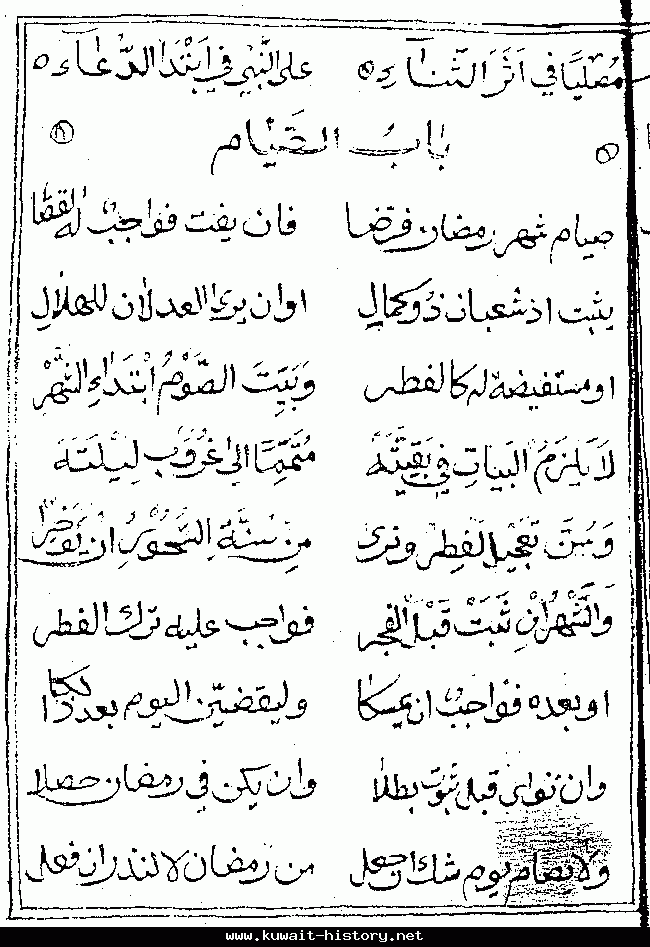 مصليا في اثر الثناء على النبي في ابتدا الدعاء
باب الصيام
صيام شهر رمضان فرضا فان يفت فواجب له القضا
يثبت اذ شعبان ذو كمال او ان يرى العدلان للهلال
او مستفيضة له كالفطر وبيت الصوم ابتداء الشهر
لا يلزم البيات في بقيته متمما الى غروب ليلته
وسن تعجيل لفطر ونرى من سنة السحور ان
والشهر ان ثبت قبل الفجر فواجب عليه ترك الفطر
او بعده فواجب ان يمسكا وليقضين اليوم بعد
وان نواى قبل ثبوت بطلا وان يكن في رمضان حصلا
ولا يصام يوم شك ان جعل من رمضان لا لنذر ان فعل
www.kuwait-history.net